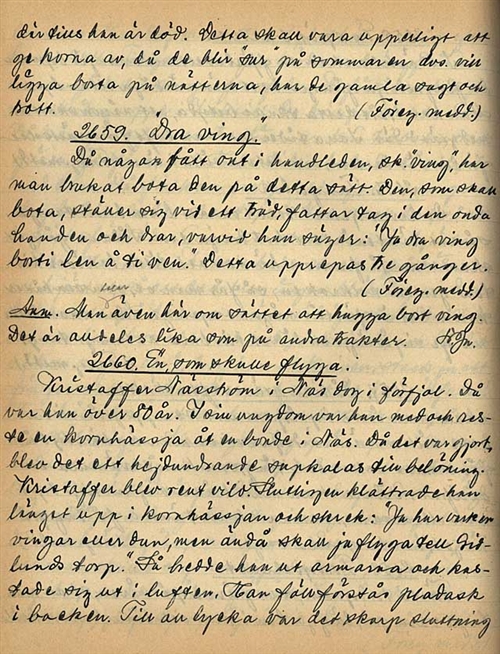 där tills han är död. Detta skall vara upperligt att
ge korna av, då de blir "sur" på sommaren dvs. vill
ligga borta på nätterna, har de gamla sagt och
trott. (Föreg. medd.)
2659. "Dra ving."
Då någon fått ont i handleden, sk. "ving", har
man brukat bota den på detta sätt. Den, som skall
bota, ställer sig vid ett träd, fattar tag i den onda
handen och drar, varvid han säger: "Ja dra ving
borti len å ti ven." Detta upprepas tre gånger.
(Föreg. medd.)
Anm. Man även här om sättet att hugga bort ving.
Det är alldeles lika som på andra trakter.
2660. En, som skulle flyga.
Kristaffer Näsström i Näs dog i förfjol. Då
var han över 80 år. I sin ungdom var han med och res-
te en kornhässja åt en bonde i Näs. Då det var gjort,
blev det ett hejdundrande supkalas till belöning.
Kristaffer blev rent vild. Slutligen klättrade han
längst upp i kornhässjan och skrek: "Ja har varken
vingar eller dun, men ändå skall ja flyga tell
lunds torp." Så bredde han ut armarna och kas-
tade sig ut i luften. Han föll förstås pladask
i backen. Till all lycka var det skarp sluttning